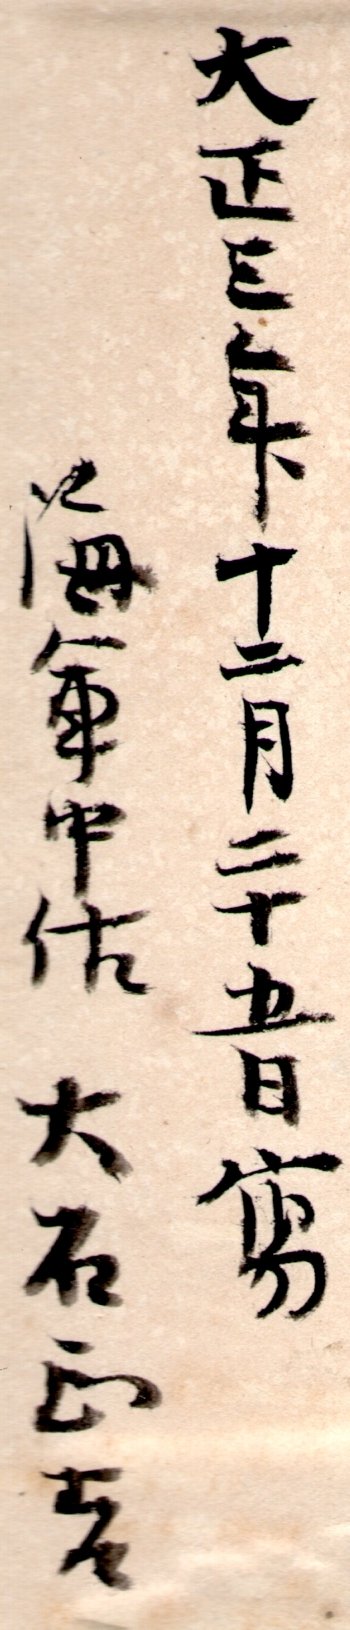 大正三年十二月二十五日寫
海軍中佐 大石正吉